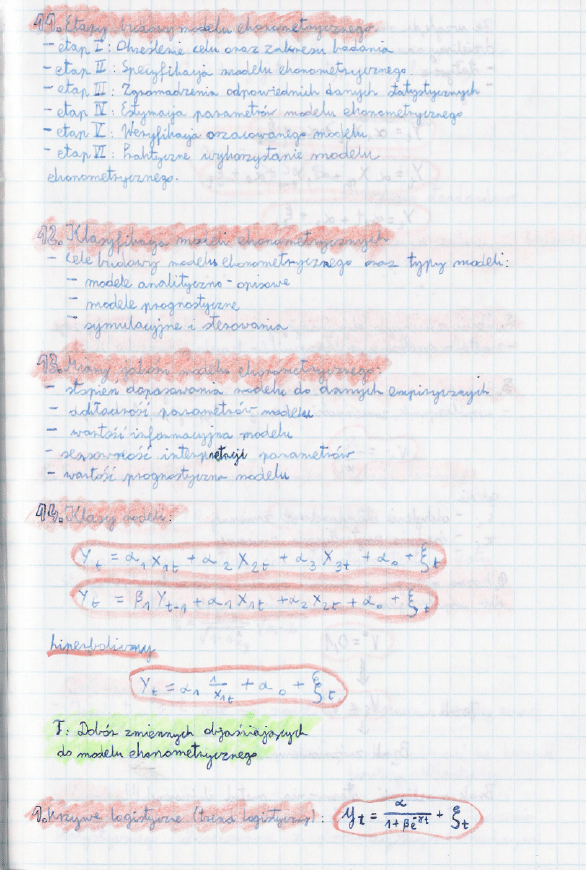 11. Etapy budowy modelu ekonometrycznego.
- etap I: Określenie celu oraz zakresu badania
- etap II: Specyfikacja modelu ekonometrycznego
- etap III: Zgromadzenia odpowiednich danych statystycznych
- etap IV: Estymacja parametrów modelu ekonometrycznego
- etap V: Weryfikacja oszacowanego modelu
- etap VI: Praktyczne wykorzystanie modelu
ekonometrycznego.
12. Klasyfikacja modeli ekonometrycznych
- Cele budowy modelu ekonometrycznego oraz typy modeli:
- modele analityczno-opisowe
- modele prognostyczne
- symulacyjne i sterowania
13. Miary jakości modelu ekonometrycznego:
- stopień dopasowania modelu do danych empirycznych
- dokładność parametrów modelu
- wartość informacyjna modelu
- sensowność interpretacji parametrów
- wartość prognostyczna modelu
14. Klasy modeli:
Y_t = α_1 X_1t + α_2 X_2t + α_3 X_3t + α_0 + ξ_t
Y_t = β_1 Y_t-1 + α_1 X_1t + α_2 X_2t + α_0 + ξ_t
hiperboliczny
Y_t = α_1 1/x_1t + α_0 + ξ_t
T: Dobór zmiennych objaśniających
do modelu ekonometrycznego
1. Krzywe logistyczne (trend logistyczny): y_t = α/(1+βe^-γt) + ξ_t